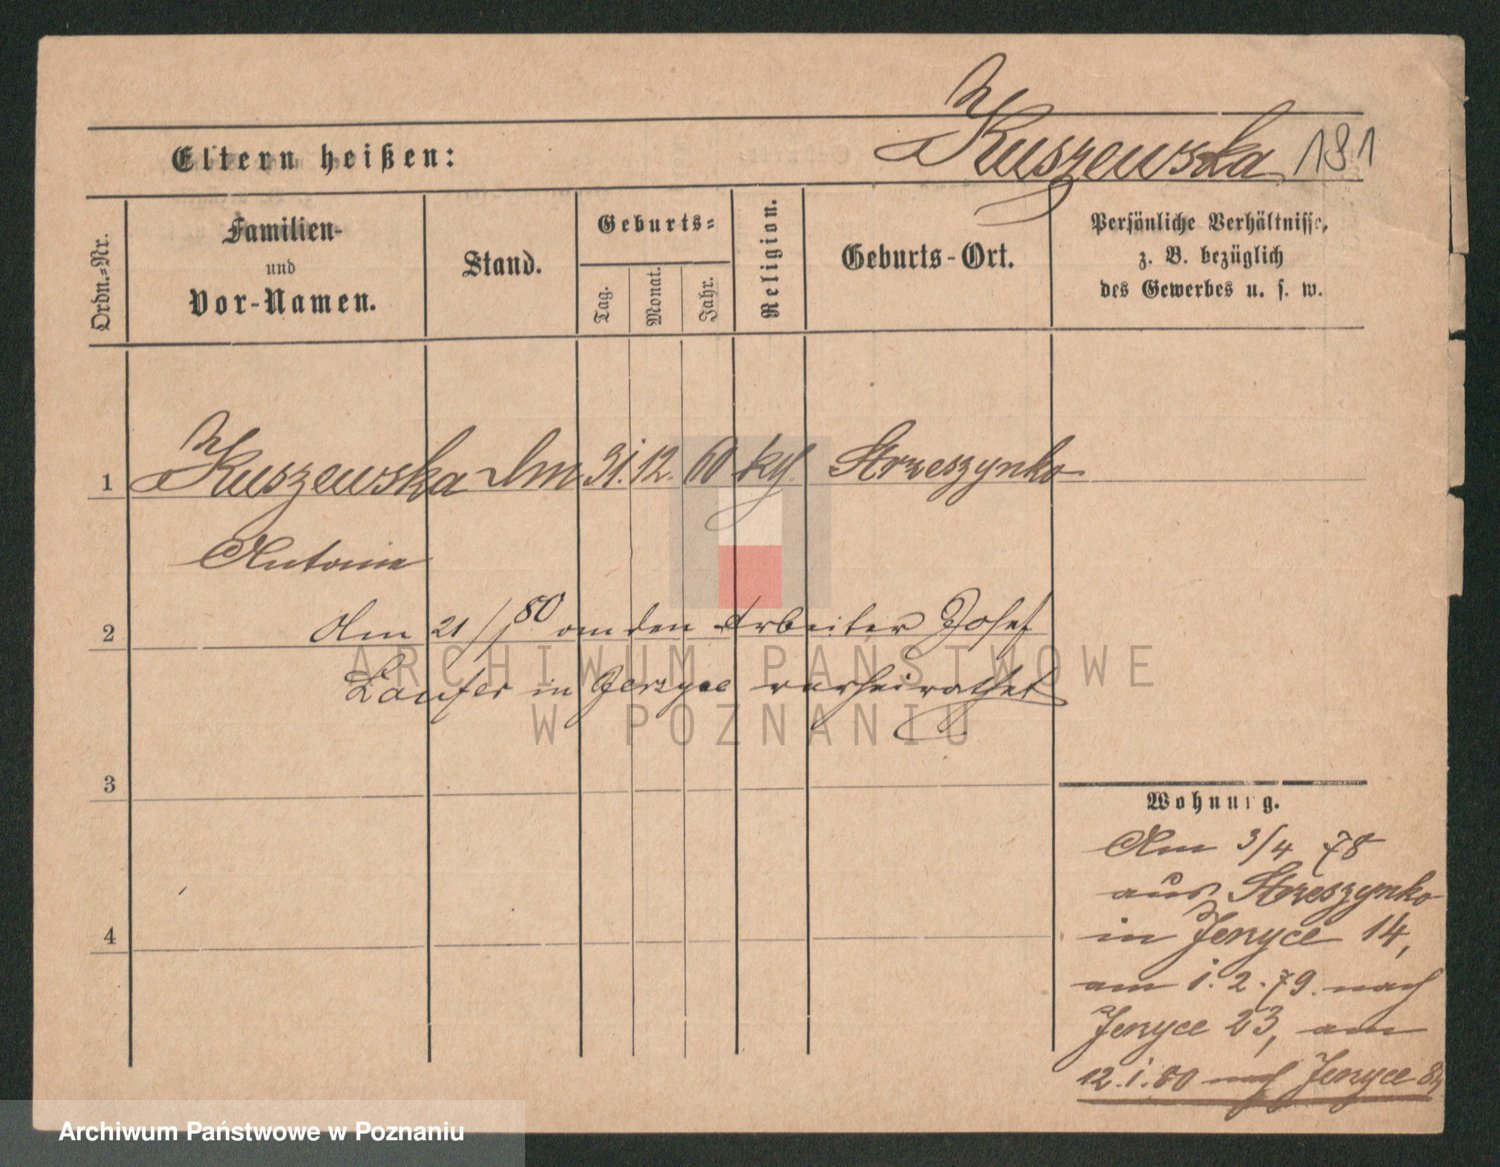 Kuszewska 191
Eltern heißen:
Ordn.-Nr.
Familien-
und
Vor-Namen.
Stand.
Geburts-
Tag.
Monat.
Jahr.
Religion.
Geburts-Ort.
Persönliche Verhältnisse,
z. B. bezüglich
des Gewerbes u. s. w.
1 Kuszewska 31. 12. 60 Strzeszynko
Antonie
2 Am 21/1 80 an den Arbeiter Josef
Laufer in Jerzyce verheirathet
ARCHIWUM PAŃSTWOWE
W POZNANIU
3
4
Wohnung.
Am 3/4 78
aus Strzeszynko
in Jerzyce 14,
am 1. 2. 79. nach
Jerzyce 23, am
12. 1. 80 nach Jerzyce
Archiwum Państwowe w Poznaniu